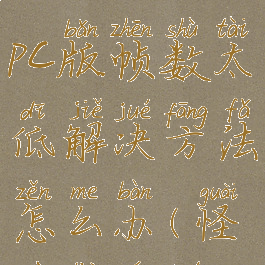 bǎn zhēn shù tài
PC版帧数太
dī jiě jué fāng fǎ
低解决方法
zěn me bàn guài
怎么办(怪